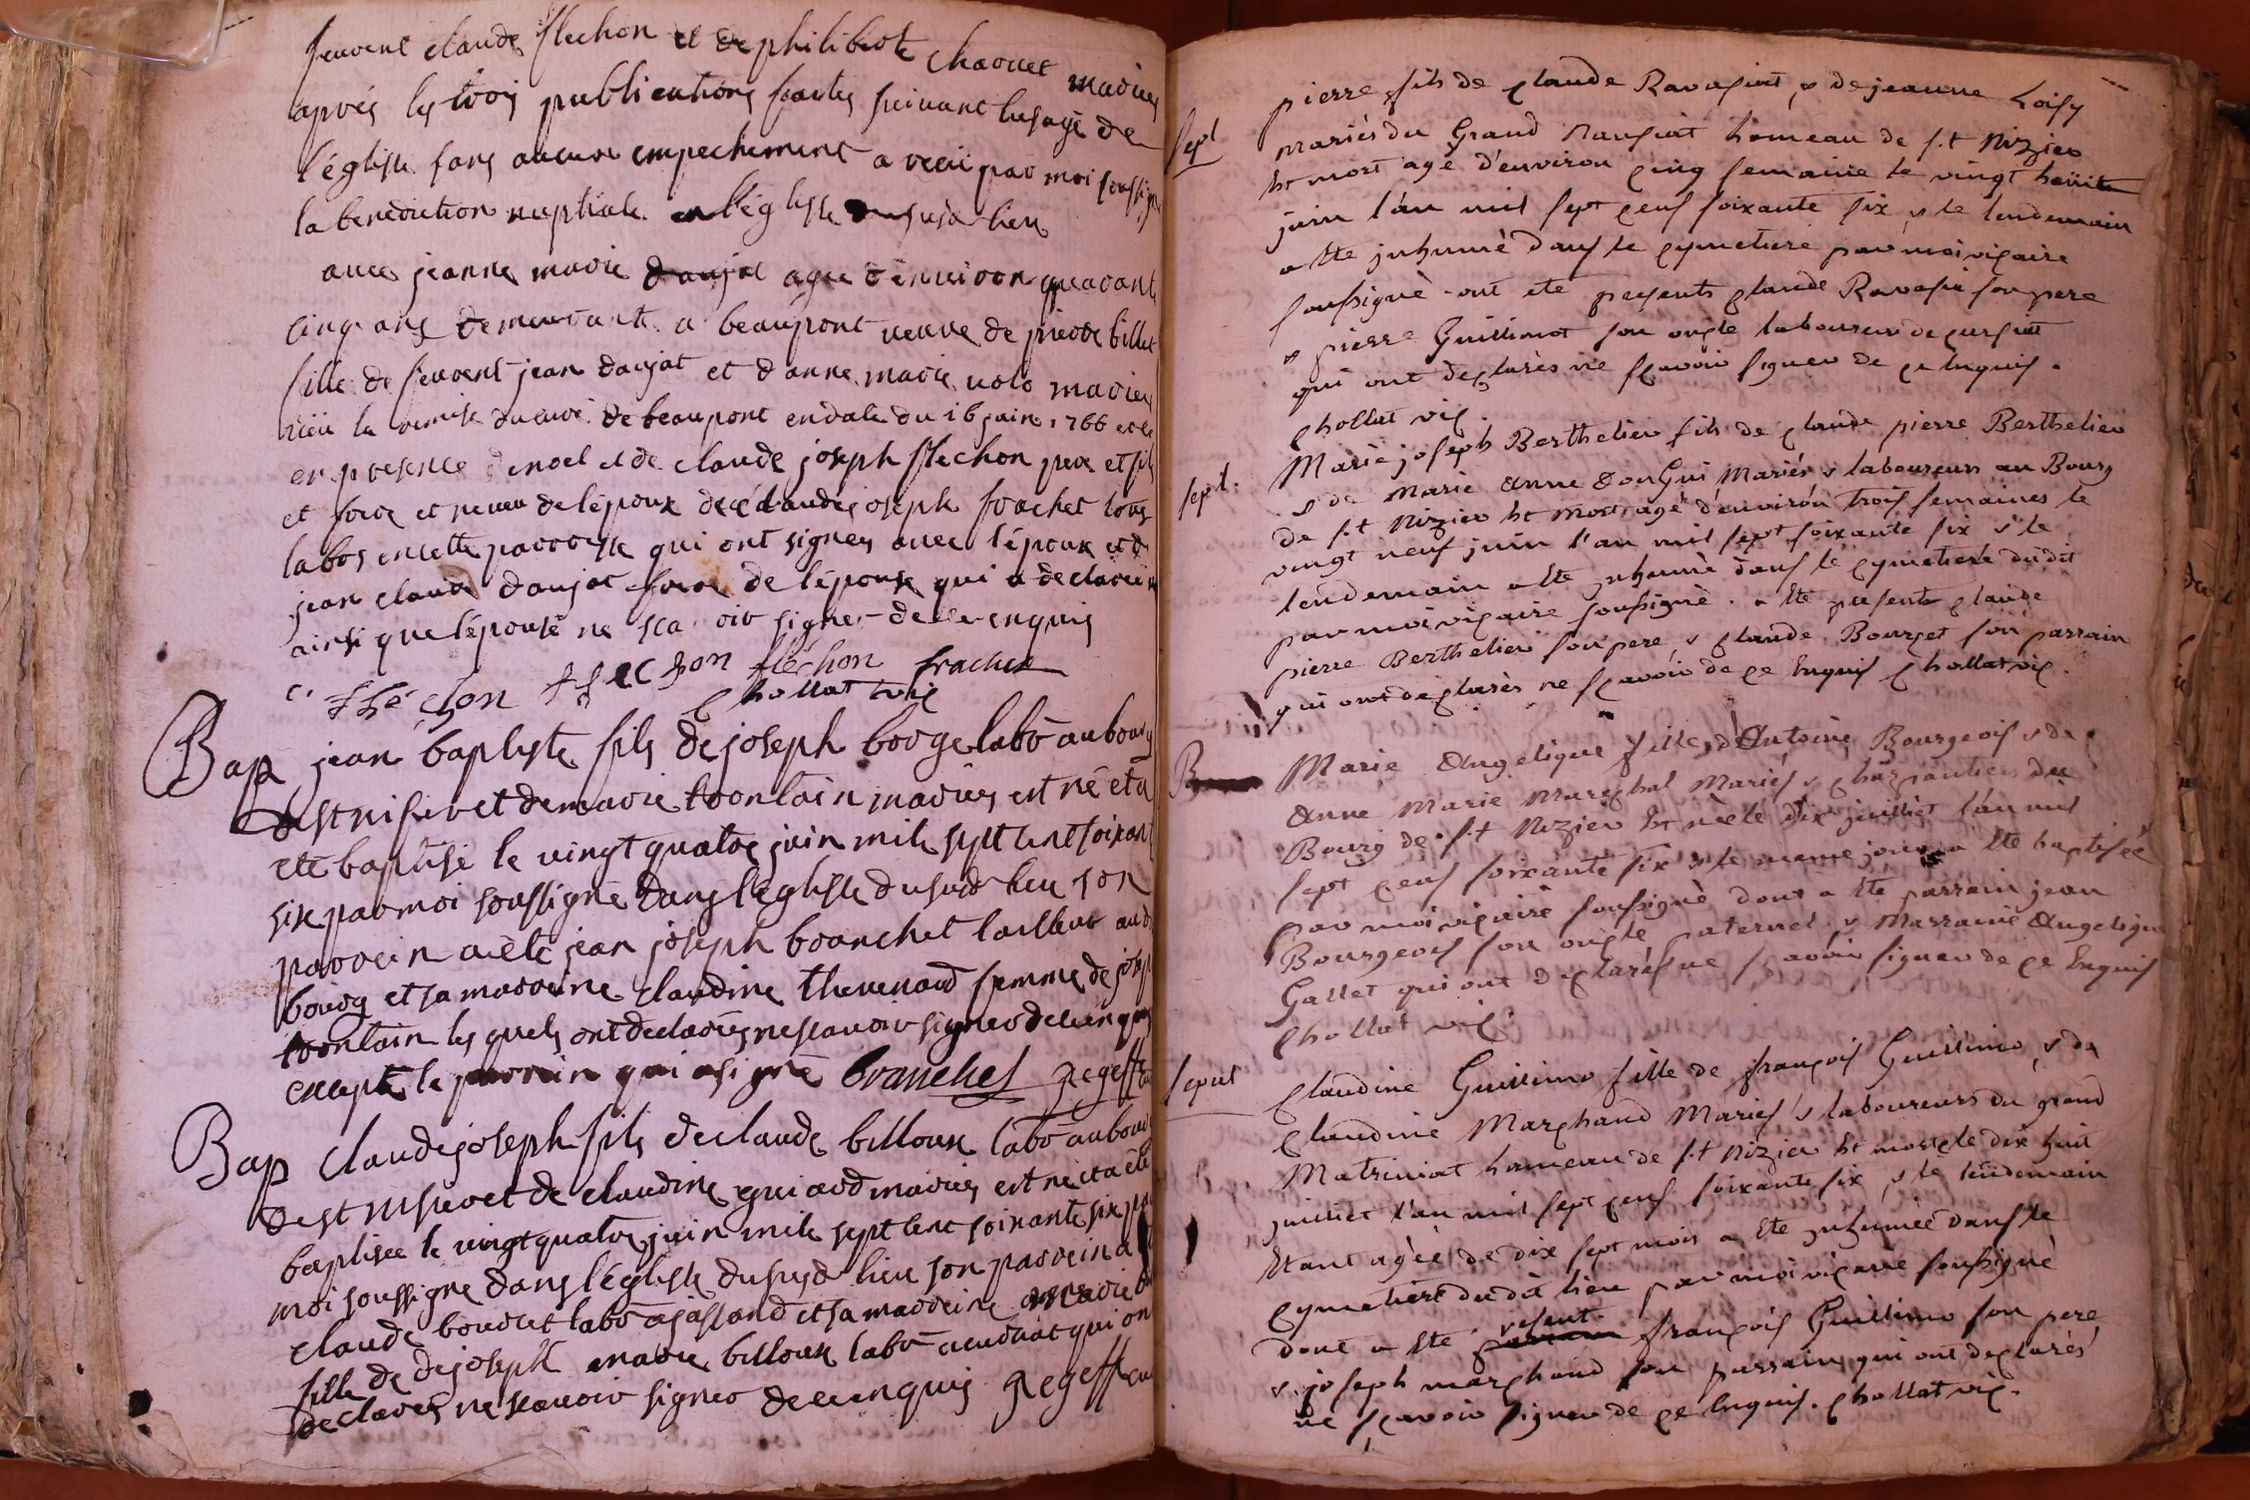 feuvent claude flechon et de philiberte chaouet mariés
aprés les trois publications faites suivant lusage de
l'église sans aucun empechement a recü par moi soussigné
la benediction nuptiale en l'église du susd lieu
avec jeanne marie daujat agée d'environ quarante
cinq ans demeurante a beaupont veuve de pierre billet
fille de feuvent jean daujat et d anne marie mariés
vüe la remise du curé de beaupont en date du 16 juin 1766
en presence de noel et de claude joseph flechon pere et fils
et frere et neveu de l'époux de claude joseph frachet tous
labos en cette parroisse qui ont signés avec l'époux et
jean claude daujat frere de l'épouse qui a declaré
ainsi que l'épouse ne scavoir signer de ce enquis
c. fléchon flechon fléchon frachet
chollat vic
Bap jean baptiste fils de joseph borge labo au bourg
de st nisier et de marie tronlain mariés est né et a
eté baptisé le vingt quatre juin mile sept cent soixante
six par moi soussigné dans l'église du susd lieu son
parrein a été jean joseph branchet tailleur aud
bourg et sa marreine claudine thevenard femme de joseph
tronlain les quels ont declarés ne scavoir signer de ce enquis
excepté le parrein qui a signé branchet
Bap claude joseph fils de claude billoux labo au bourg
de st nisier et de claudine guiard mariés est né et a été
baptisée le vingt quatre juin mile sept cent soixante six par
moi soussigné dans l'église du susd lieu son parrein a
claude bourcet labo a jassand et sa marreine marie
fille de de joseph marie billoux labo qui on
declarés ne scavoir signer de ce enquis
pierre fils de claude Ravasiat, & de jeanne Loisy
Sept mariés du Grand Mansiat hameau de s.t Nizier
Et mort agé d'environ cinq semaine le vingt heuit
juin l'an mil sept cens soixante six, & le lendemain
a Ete juhumé dans le cymetiere par moi vicaire
soussigné ont eté presents claude Ravasia son pere
& pierre Guillimot son oncle laboureur de cursiat
qui ont declarés ne scavoir signer de ce Enquis.
chollat vic.
Marie joseph Berthelier fils de claude pierre Berthelier
sept. & de Marie Anne DonGui Mariés & laboureurs au Bourg
de s.t Nizier Et mort agé d'environ trois semaines le
vingt neuf juin l'an mil sept soixante six & le
lendemain a Ete juhumé dans le cymetiere dudit
par moi vicaire soussigné. a Eté presents claude
pierre Berthelier son pere, & claude Bourcet son parrain
qui ont declarés ne scavoir de ce Enquis chollat vic.
B Marie Angelique fille d'Antoine Bourgeois & de
Anne Marie Marechal Mariés & charpantier du
Bourg de s.t Nizier Et née le dix juilliet l'an mil
sept cens soixante six & le meme jour a Ete baptisée
par moi vicaire soussigné dont a Eté parrain jean
Bourgeois son oncle paternel & Marraine Angelique
Gallet qui ont declarés ne scavoir signer de ce Enquis
chollat vic.
sepul claudine Guillimo fille de françois Guillimo, & de
claudine Marchand Mariés & laboureurs du grand
Matriniat hameau de s.t Nizier Et morte le dix huit
juilliet l'an mil sept cens soixante six, & le lendemain
Etant agée de dix sept mois a Ete juhumée dans le
cymetiere dudit lieu par moi vicaire soussigné
dont a Ete present françois Guillimo son pere
& joseph marchand son parrain qui ont declarés
ne scavoir signer de ce Enquis. chollat vic.